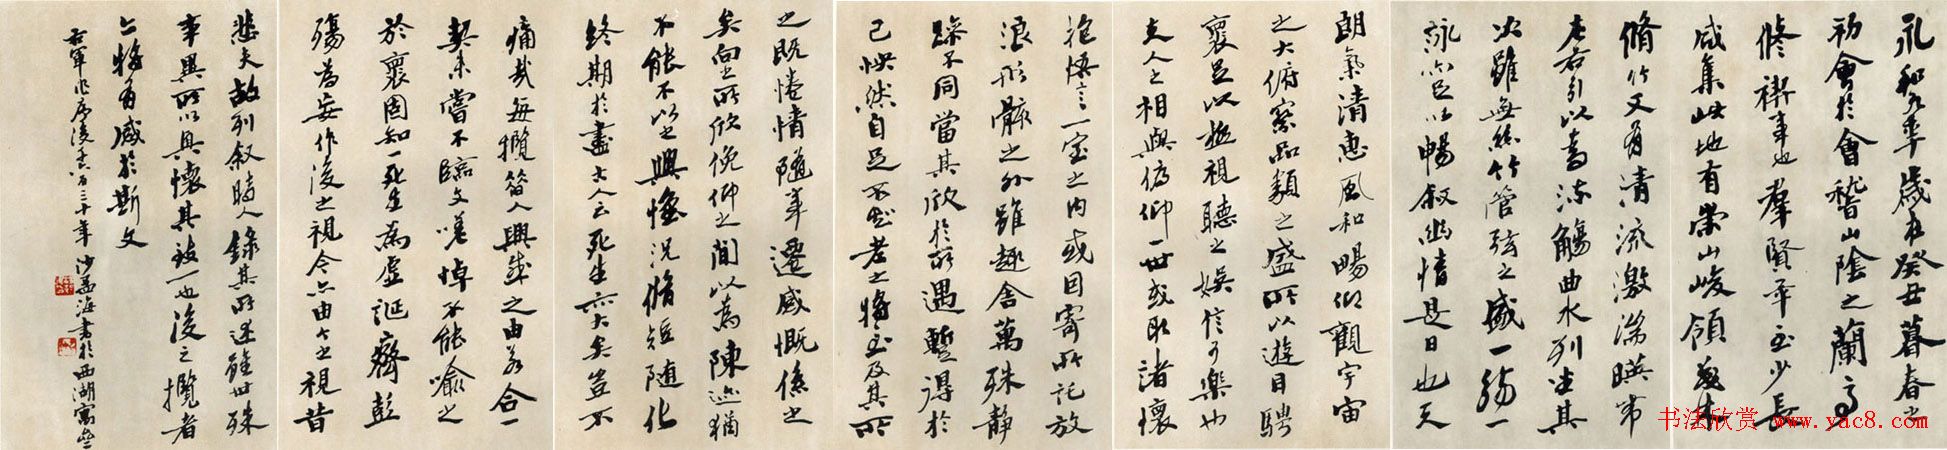 永和九年歲在癸丑暮春之
初會於會稽山陰之蘭亭
修禊事也羣賢畢至少長
咸集此地有崇山峻領茂林
脩竹又有清流激湍暎帶
左右引以為流觴曲水列坐其
次雖無絲竹管弦之盛一觴一
詠亦足以暢叙幽情是日也天
朗氣清惠風和暢仰觀宇宙
之大俯察品類之盛所以遊目騁
褱足以極視聽之娛信可樂也
夫人之相與俯仰一世或取諸懷
抱悟言一室之内或因寄所託放
浪形骸之外雖趣舍萬殊静
躁不同當其欣於所遇蹔得於
己怏然自足不知老之將至及其所
之既惓情隨事遷感慨係之
矣向之所欣俛仰之閒以為陳迹猶
不能不以之興懷況脩短隨化
終期於盡古人云死生亦大矣豈不
痛哉每攬昔人興感之由若合一
契未嘗不臨文嗟悼不能喻之
於褱固知一死生為虛誕齊彭
殤為妄作後之視今亦由今之視昔
悲夫故列叙時人錄其所述雖世殊
事異所以興懷其致一也後之攬者
亦將有感於斯文
右軍作序後千六百三十年沙孟海書於西湖寓廬
书法欣赏 www.yac8.com